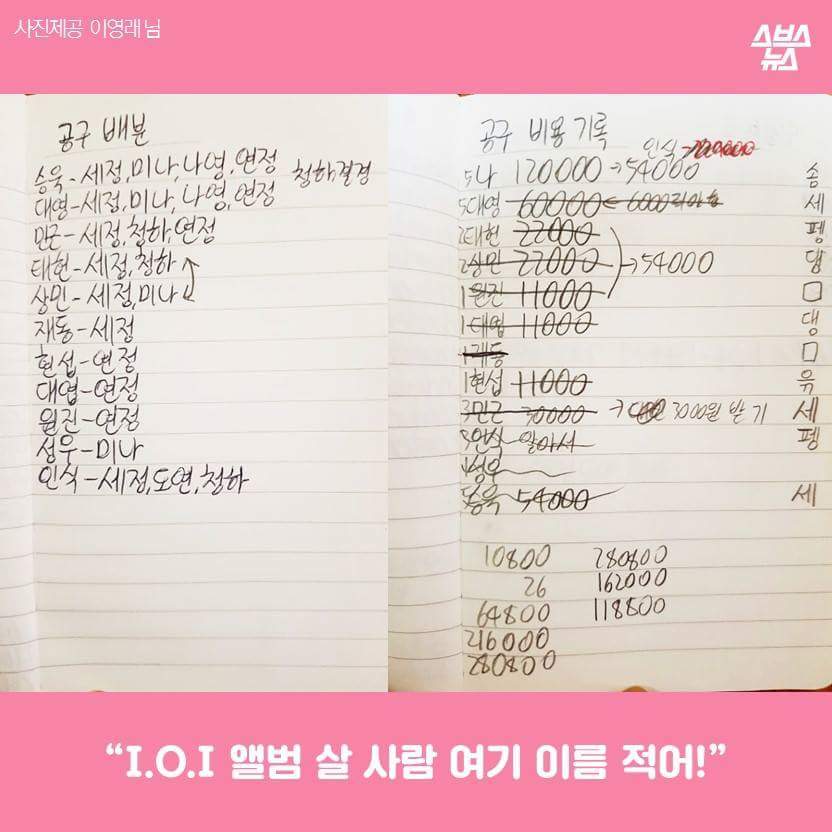 사진제공 이영래 님
스브스
뉴스
공구 배분
승욱-세정,미나,나영,연정
청하결경
대영-세정,미나,나영,연정
민근-세정,청하,연정
태헌-세정,청하
상민-세정,미나
재동-세정
현섭-연정
대엽-연정
원진-연정
성우-미나
인식-세정,도연,청하
공구 비용 기록
인식→
5나 120000→54000 솜
5대영 60000← 세
2태헌 22000 펭
2상민 22000 →54000 댕
1원진 11000 □
1대엽 11000 댕
1재동 □
1현섭 11000 유
3민근 30000 → 3000원 받기 세
인식 알아서 펭
성우
승욱 54000 세
10800 280800
26 162000
64800 118800
216000
280800
“I.O.I 앨범 살 사람 여기 이름 적어!”